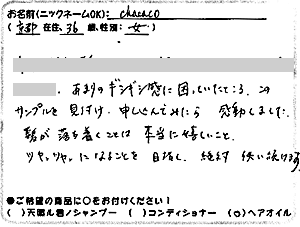 お名前(ニックネームOK): chacaco
(京都 在住、36 歳、性別: 女)
。あまりのギシギシ感に困っていたところ、この
サンプルを見つけ、申し込んでみたら 感動しました。
髪が落ち着くことは 本当に嬉しいこと。
ツヤッツヤになることを目指し、絶対 使い続けます。
●ご希望の商品に○をお付けください!
( )天郷ル書ノシャンプー ( )コンディショナー (○)ヘアオイル